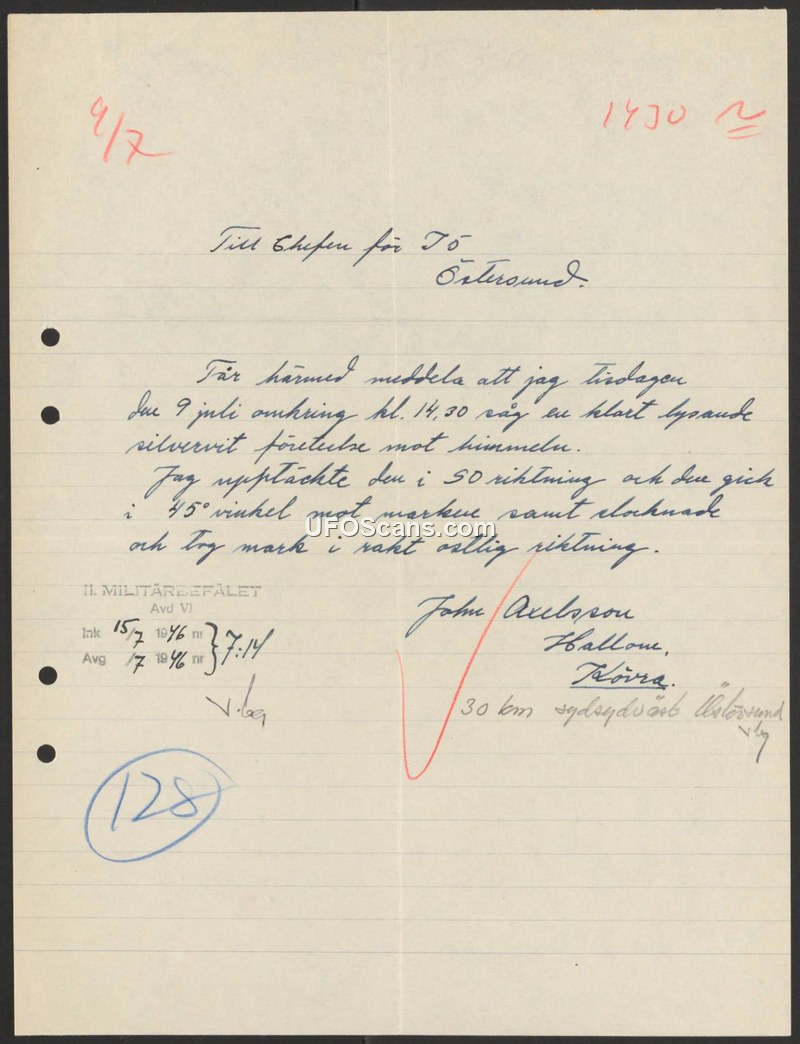 9/7
1430 N
Till Chefen för I5
Östersund.
Får härmed meddela att jag tisdagen
den 9 juli omkring kl. 14,30 såg en klart lysande
silvervit företeelse mot himmeln.
Jag upptäckte den i SO riktning och den gick
i 45° vinkel mot marken samt slocknade
och tog mark i rakt ostlig riktning.
UFOScans.com
John Axelsson
Hallom,
Kövra.
30 km sydsydväst Östersund
II. MILITÄRBEFÄLET
Avd VI
Ink 15/7 1946 nr
Avg /7 1946 nr
7:14
128